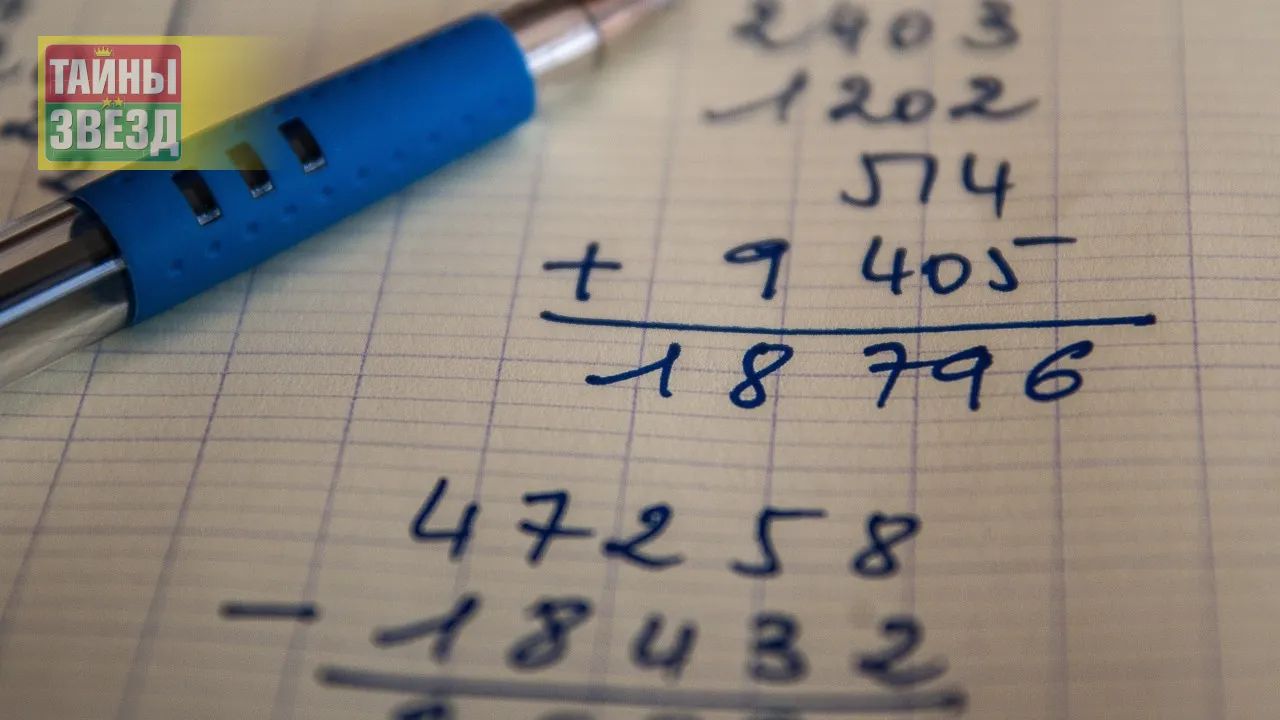 ТАЙНЫ
ЗВЁЗД
2403
1202
514
+ 9 405
18 796
47258
- 18432